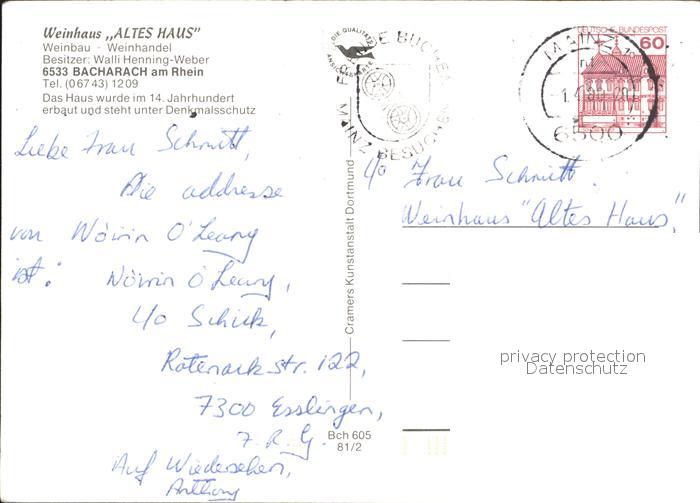 Weinhaus „ALTES HAUS”
Weinbau · Weinhandel
Besitzer: Walli Henning-Weber
6533 BACHARACH am Rhein
Tel. (0 67 43) 12 09
Das Haus wurde im 14. Jahrhundert
erbaut und steht unter Denkmalsschutz
Liebe Frau Schmitt,
Die addresse
von Nóirín O'Leary
ist: Nóirín O'Leary,
c/o Schick,
Rotenackstr. 122,
7300 Esslingen,
F.R.G.
Auf Wiedersehen,
Anthony
Cramers Kunstanstalt Dortmund
Bch 605
81/2
DIE QUALITÄTS
ANSICHTSKARTE
MAINZ BESUCHEN
DEUTSCHE BUNDESPOST
60
MAINZ
6500
c/o Frau Schmitt.
Weinhaus "Altes Haus,"
privacy protection
Datenschutz